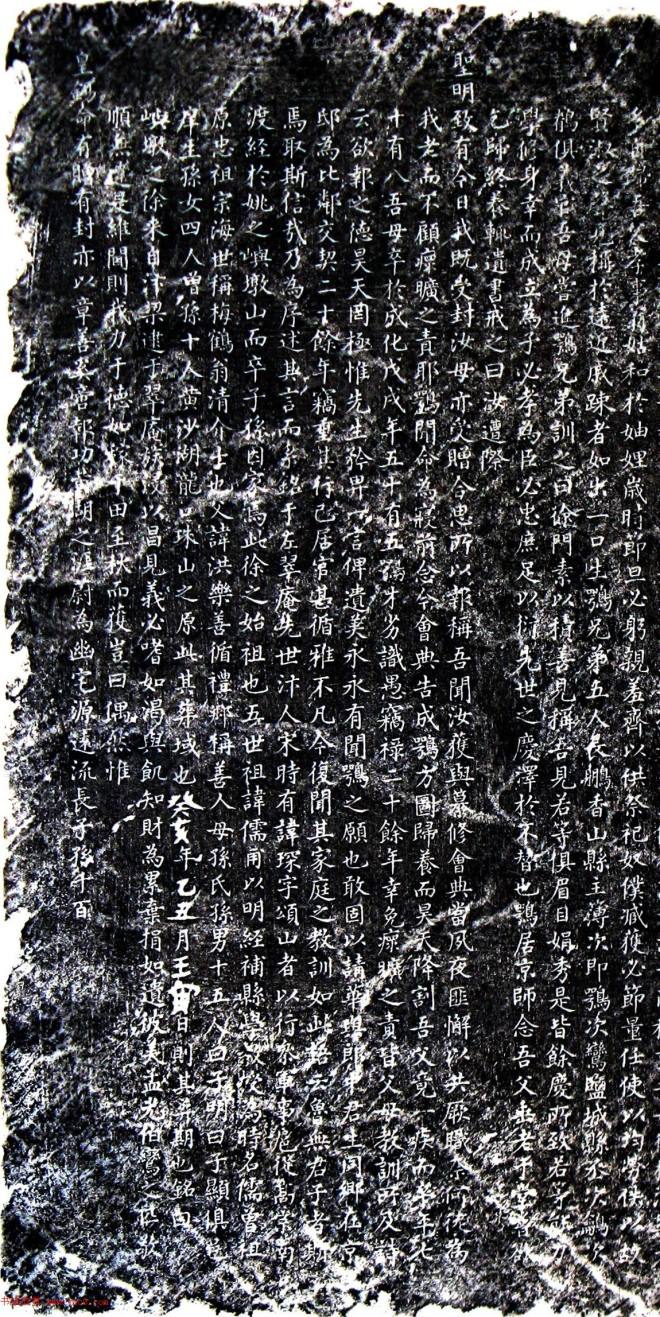 賢淑之 見稱於遠近戚疎者如出一口生鶚兄弟五人長鵬香山縣主薄次即鶚次鸞鹽城縣丞次鷁次
鶴俱義官吾母嘗進鶚兄弟訓之曰徐門素以積善見稱吾見若等俱眉目娟秀是皆餘慶所致若等能力
學修身幸而成立為子必孝為臣必忠庶足以衍先世之慶澤於不替也鶚居京師念吾父垂老于堂嘗欲
乞歸終養輒遺書戒之曰汝遭際
聖明致有今日我既受封汝母亦受贈今思所以報稱吾聞汝獲與纂修會典當夙夜匪懈以共厥職奈何徒為
我老而不顧瘝曠之責耶鶚聞命為戒前念今會典告成鶚方圖歸養而昊天降割吾父竟一疾而卒年七
十有八吾母卒於成化戊戌年五十有五鶚才劣識愚竊祿二十餘年幸免瘝曠之責皆父母教訓所及詩
云欲報之德昊天罔極惟先生矜畀一言俾遺美永永有聞鶚之願也敢固以請華 郎中君生同鄉在京
邸為比鄰交契二十餘年竊重其行己居官甚循雅不凡今復聞其家庭之教訓如此語云魯無君子者斯
焉取斯信哉乃為序述其言而系銘于左翠庵先世汴人宋時有諱琛字頌山者以行 軍事扈從高宗南
渡經於姚之嶼墩山而卒子孫因家焉此徐之始祖也五世祖諱儒甫以明經補縣學教 為時名儒曾祖
原忠祖宗海世稱梅鶴翁清介士也父諱洪樂善循禮鄉稱善人母孫氏孫男十五人曰子明曰子顯俱
庠生孫女四人曾孫十人黃沙湖龍口珠山之原此其葬域也癸亥年乙丑月壬寅日則其葬期也銘曰
嶼墩之徐來自汴梁逮于翠庵族 以昌見義必嗜如渴與飢知財為累棄捐如遺彼美孟光伯鸞之
順無違是維閫則我力于德如稼于田至秋而獲豈曰偶然惟
皇錫命有贈有封亦以章善 報功 湖之 蔚為幽宅源遠流長子孫千百